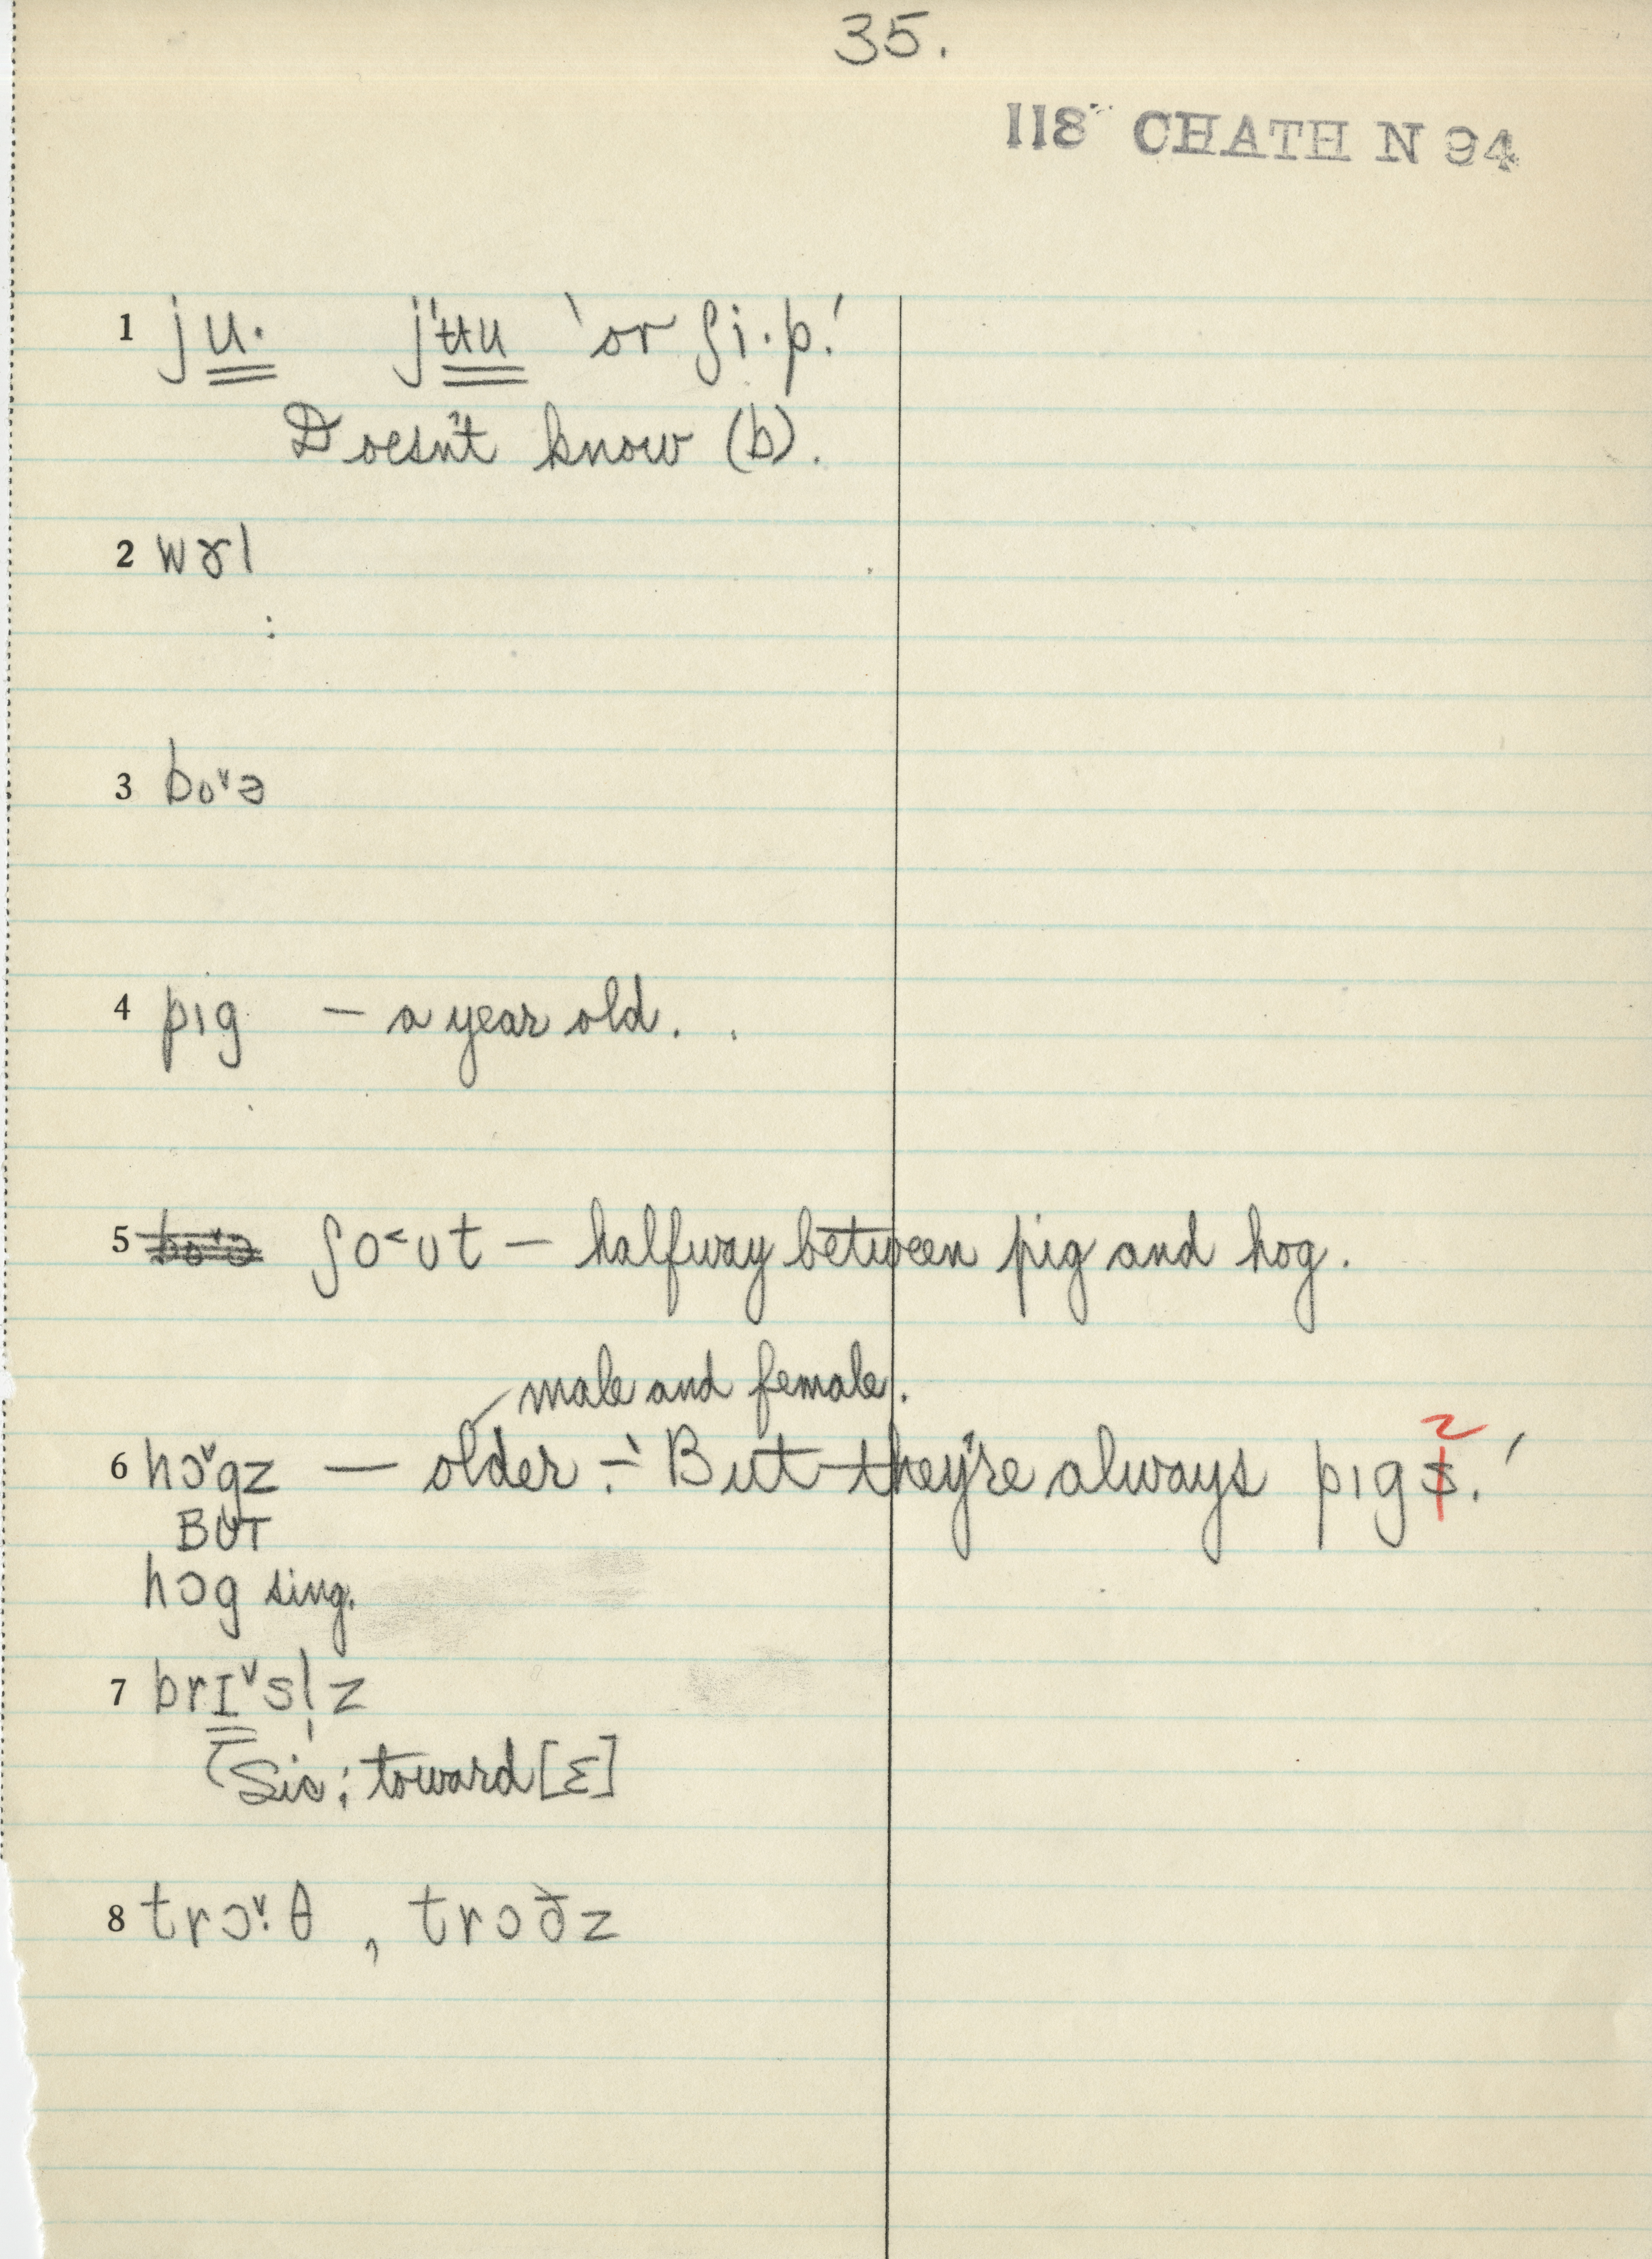 35.
118 CHATH N 94
1 ju· jʉu 'or ʃi·p.'
Doesn't know (b).
2 wɤl
3 bo˅ə
4 pɪg — a year old.
5 ʃo˂ʊt — halfway between pig and hog.
male and female.
6 hɔ˅gz — older – 'But they're always pɪgz.'
BUT
hɔg sing.
7 brɪ˅sl̩z
Sic; toward [ɛ]
8 trɔ˅·θ , trɔðz